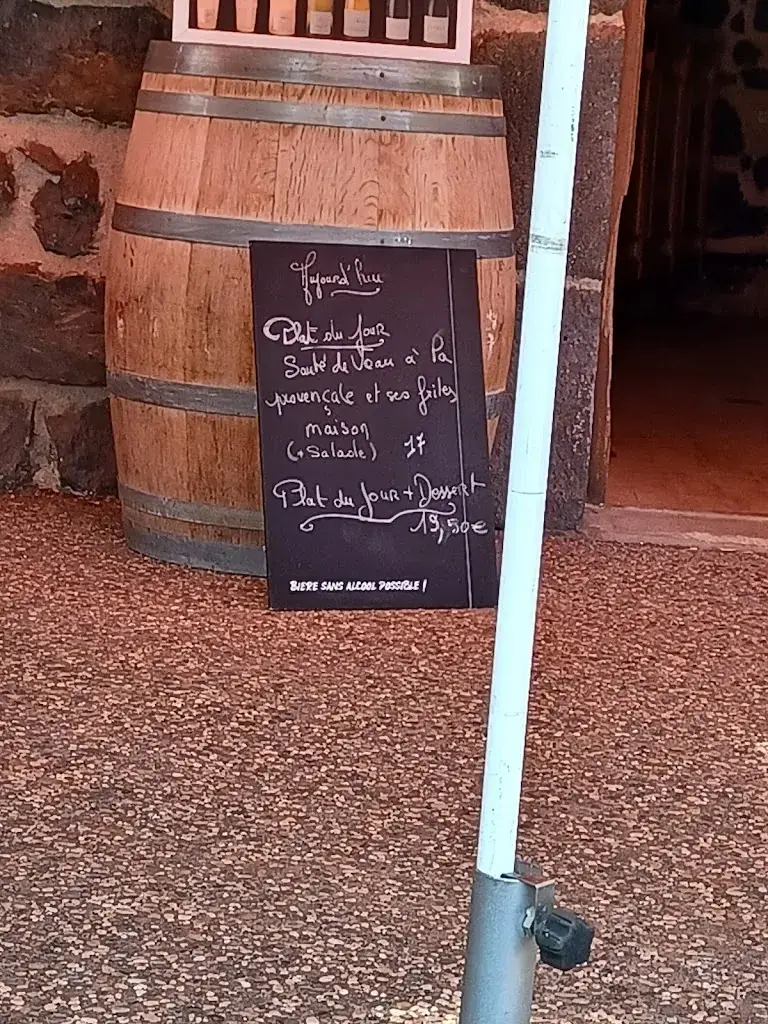 Aujourd'hui
Plat du Jour
Sauté de Veau à la
provençale et ses frites
maison
(+ Salade) 17
Plat du Jour + Dessert
19,50€
BIERE SANS ALCOOL POSSIBLE !